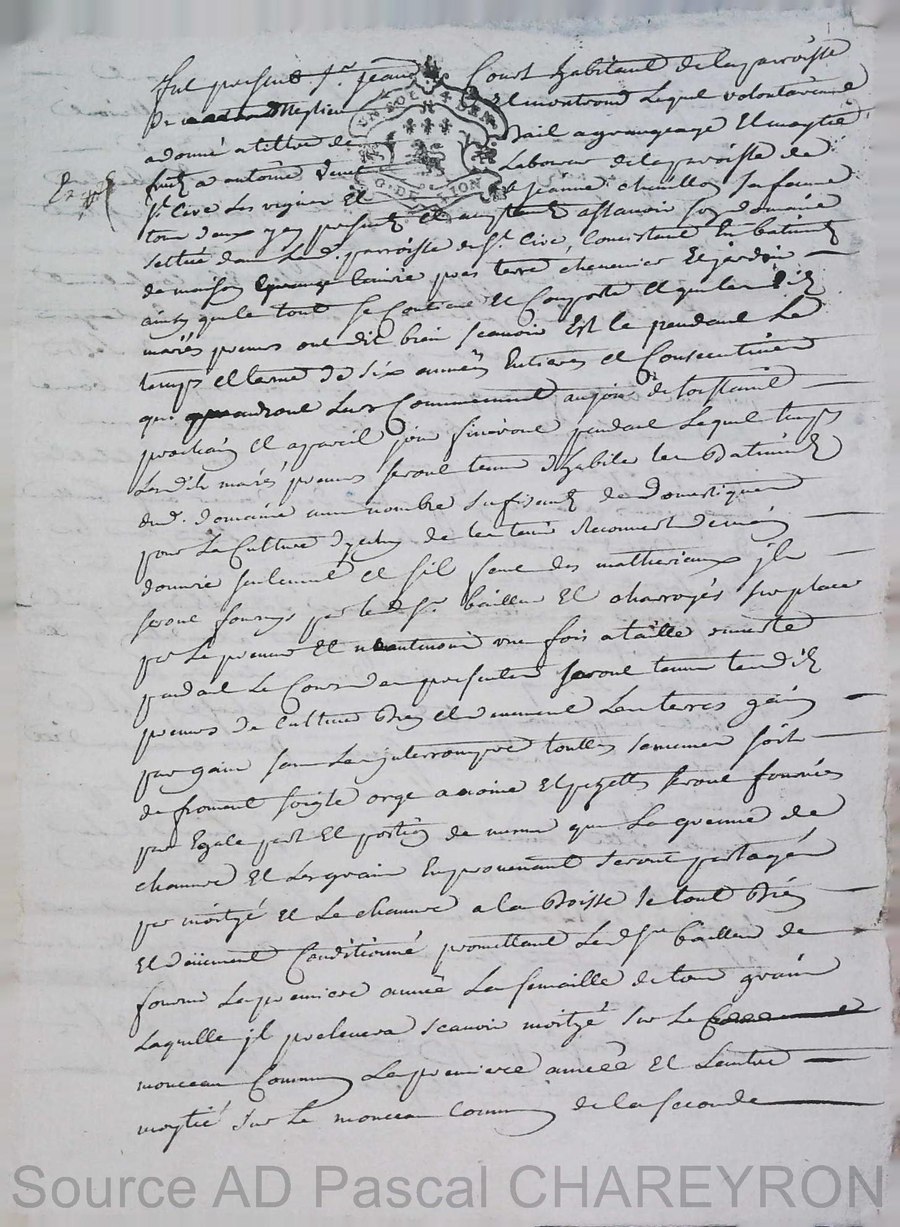 Fut present Sr. Jean Court habitant de la parroisse
de
et montrond Lequel volontairem
a donné a tittre de Bail a grangeage Et moytié
fruit a antoine Laboreur de la parroisse de
Exp
St. Cire Les vignes Et Jeanne chirillon sa femme
tous deux icy presents Et acceptants assavoir son domaine
scittué dans La de. parroisse de St. Cire, Consistant En batiment
de maison grange Ecuirie pres terre chenevier Et jardin
ainsy que le tout se Contient Et Comporte Et que les dits
mariés preneurs ont dit bien scavoir Est ce pendant Le
temps Et terme de six années Entieres et Consecutives
qui prandront Leur Commencement au jour de toussaint
prochain Et a pareil jour finiront pendant Lequel temps
Lesdits mariés preneurs seront tenus d'habiter Les Batiments
dud. domaine au nombre sufisant de Domestiques
pour La Culture d'yceluy de les tenir Recouvert de main
douvrie seulement et s'il faut des matheriaux jls
seront fournys par led Sr. bailleur Et charroyés sur place
par Le preneur Et une fois a taille ouverte
pendant Le Cours du present seront tenus lesdits
preneurs de Cultiver Bien et duement Les terres gain
par gain sans Les jnterrompre touttes semences soit
de froment soigle orge avoine Et pezettes seront fournies
par Egale part Et portion de meme que La grenne de
chanvre Et Les grains En provenant seront partagés
par moityé Et Le chanvre a la Boisse le tout Bien
Et duement Conditionné promettant Led Sr. bailleur de
fournir La premiere année La semaille de tous grains
Laquelle jl prelevera scavoir moityé sur Le
monceau Commun La premiere année Et Lautre
moytié sur Le monceau Commun de la seconde
UN SOL 4 DEN
G. DE LION
Source AD Pascal CHAREYRON